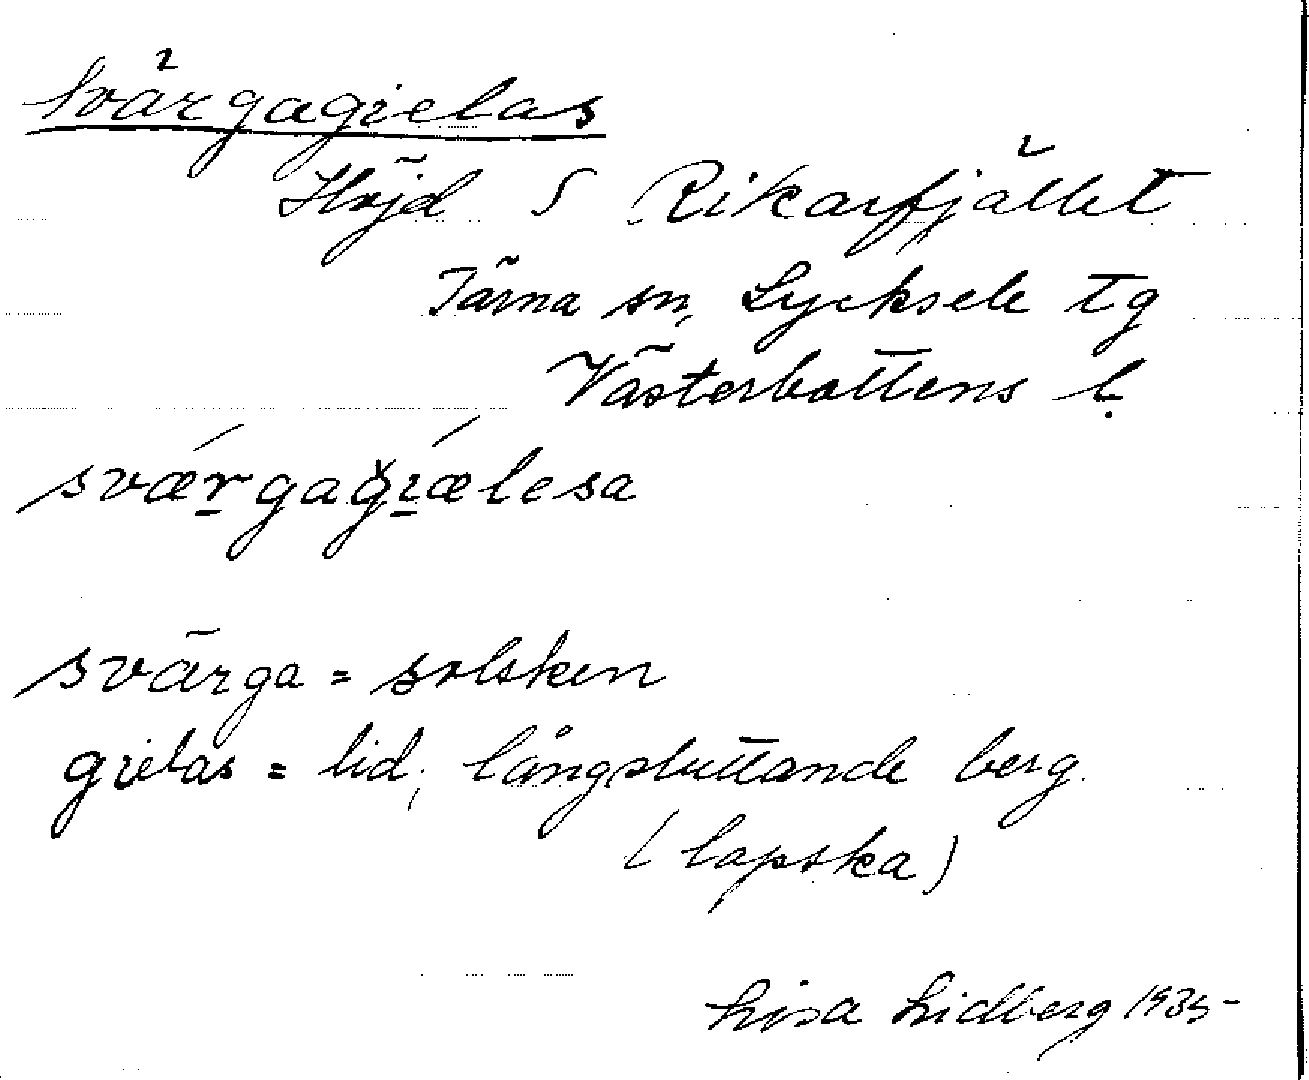 Svärgagielas
Höjd S Rikarfjället
Tärna sn, Lycksele tg
Västerbottens l.
sværgagıælesa
svärga = solsken
gielas = lid, långsluttande berg.
(lapska)
Lisa Lidberg 1935